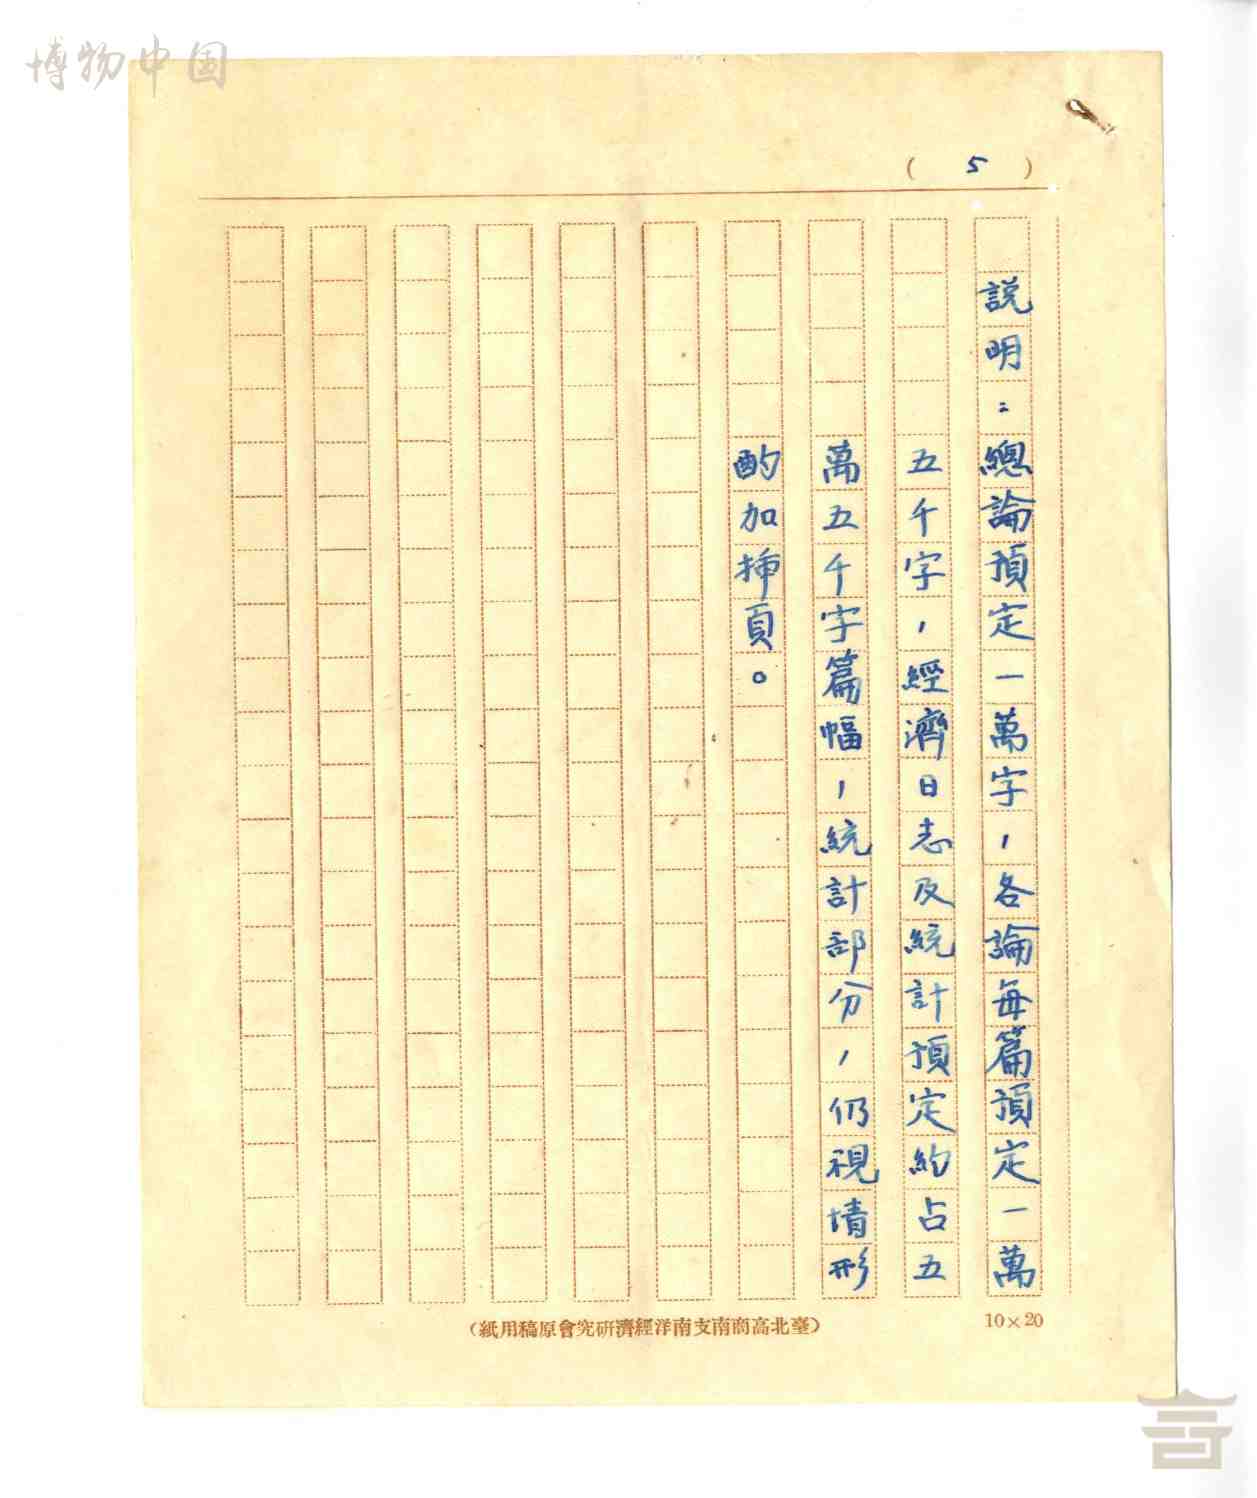 博物中国
( 5 )
説明：總論預定一萬字，各論每篇預定一萬
五千字，經濟日志及統計預定約占五
萬五千字篇幅，統計部分，仍視情形
酌加插頁。
（臺北高商南支南洋經濟研究會原稿用紙）
10×20